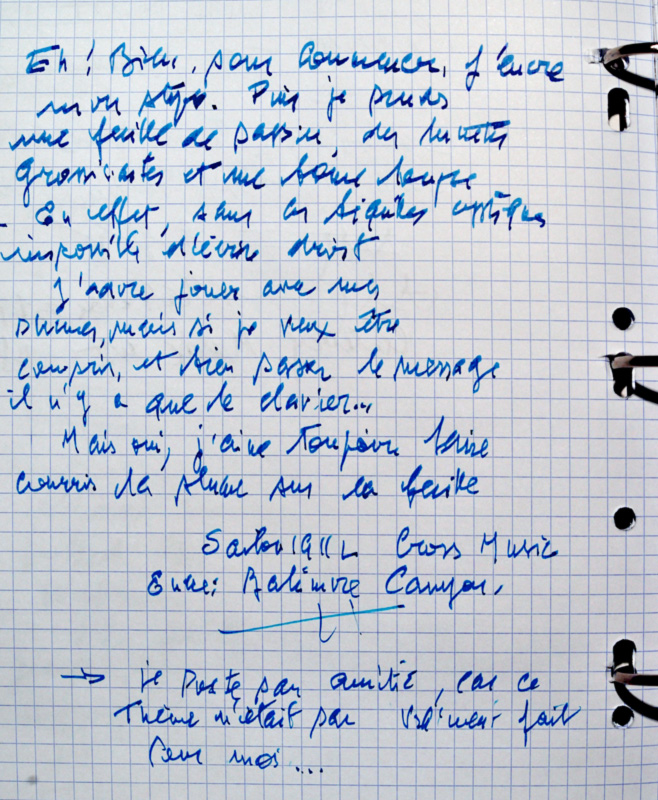 Eh! Bien, pour commencer, j'encre
mon stylo. Puis je prends
une feuille de, des lunettes
grossissantes et une bonne loupe
En effet, sans ces béquilles optiques
impossible d'écrire droit
J'adore jouer avec mes
plumes, mais si je veux être
compris, et bien passer le message
il n'y a que le clavier...
Mais oui, j'aime toujours faire
courir la plume sur la feuille
Sailor 1911 L Cross Music
Encre: Canyon.
→ je poste par amitié, car ce
Thème n'était pas vraiment fait
pour moi...